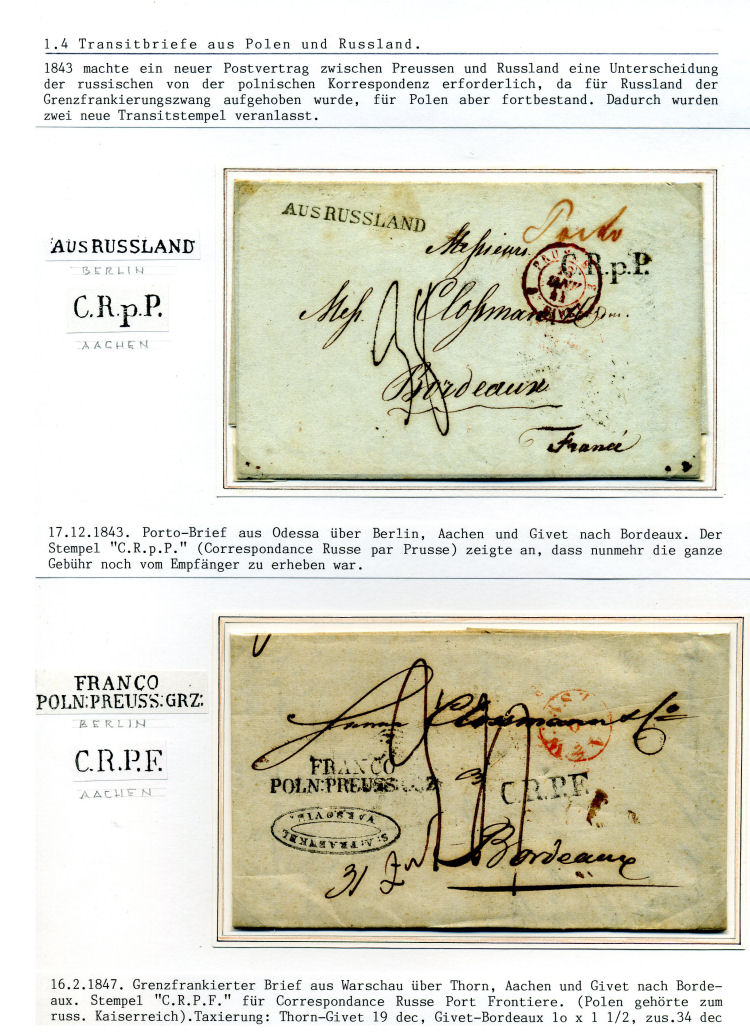 1.4 Transitbriefe aus Polen und Russland.
1843 machte ein neuer Postvertrag zwischen Preussen und Russland eine Unterscheidung
der russischen von der polnischen Korrespondenz erforderlich, da für Russland der
Grenzfrankierungszwang aufgehoben wurde, für Polen aber fortbestand. Dadurch wurden
zwei neue Transitstempel veranlasst.
AUS RUSSLAND
BERLIN
C.R.p.P.
AACHEN
AUS RUSSLAND
Porto
Messieurs
C.R.p.P.
Mess. Clossmann
Bordeaux
France
17.12.1843. Porto-Brief aus Odessa über Berlin, Aachen und Givet nach Bordeaux. Der
Stempel "C.R.p.P." (Correspondance Russe par Prusse) zeigte an, dass nunmehr die ganze
Gebühr noch vom Empfänger zu erheben war.
FRANCO
POLN:PREUSS:GRZ:
BERLIN
C.R.P.F.
AACHEN
Clossmann & Co
FRANCO
POLN:PREUSS:GRZ
C.R.P.F.
VARSOVIE
Bordeaux
31
16.2.1847. Grenzfrankierter Brief aus Warschau über Thorn, Aachen und Givet nach Borde-
aux. Stempel "C.R.P.F." für Correspondance Russe Port Frontiere. (Polen gehörte zum
russ. Kaiserreich).Taxierung: Thorn-Givet 19 dec, Givet-Bordeaux 1o x 1 1/2, zus.34 dec